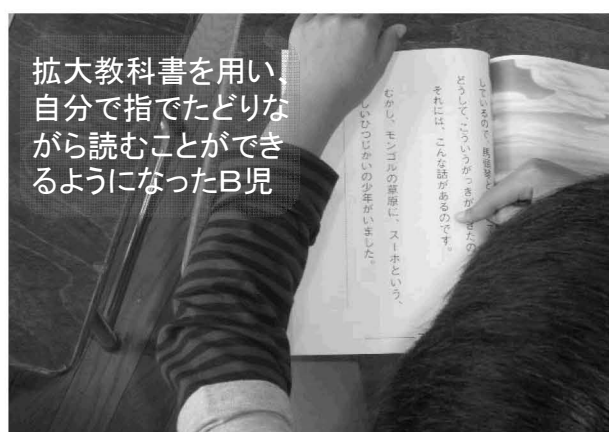 拡大教科書を用い、
自分で指でたどりな
がら読むことができ
るようになったB児
しているので、馬頭琴と
どうして、こういうがっきが
きたの
それには、こんな話があるのです。
むかし、モンゴルの草原に、スーホという、
しいひつじかいの少年がいました。